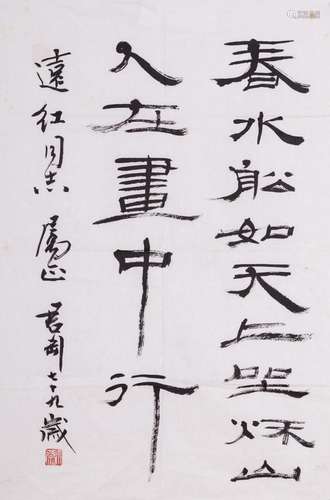 春水船如天上坐秌山
人在畫中行
遠紅同志屬正 君匋七十九歲